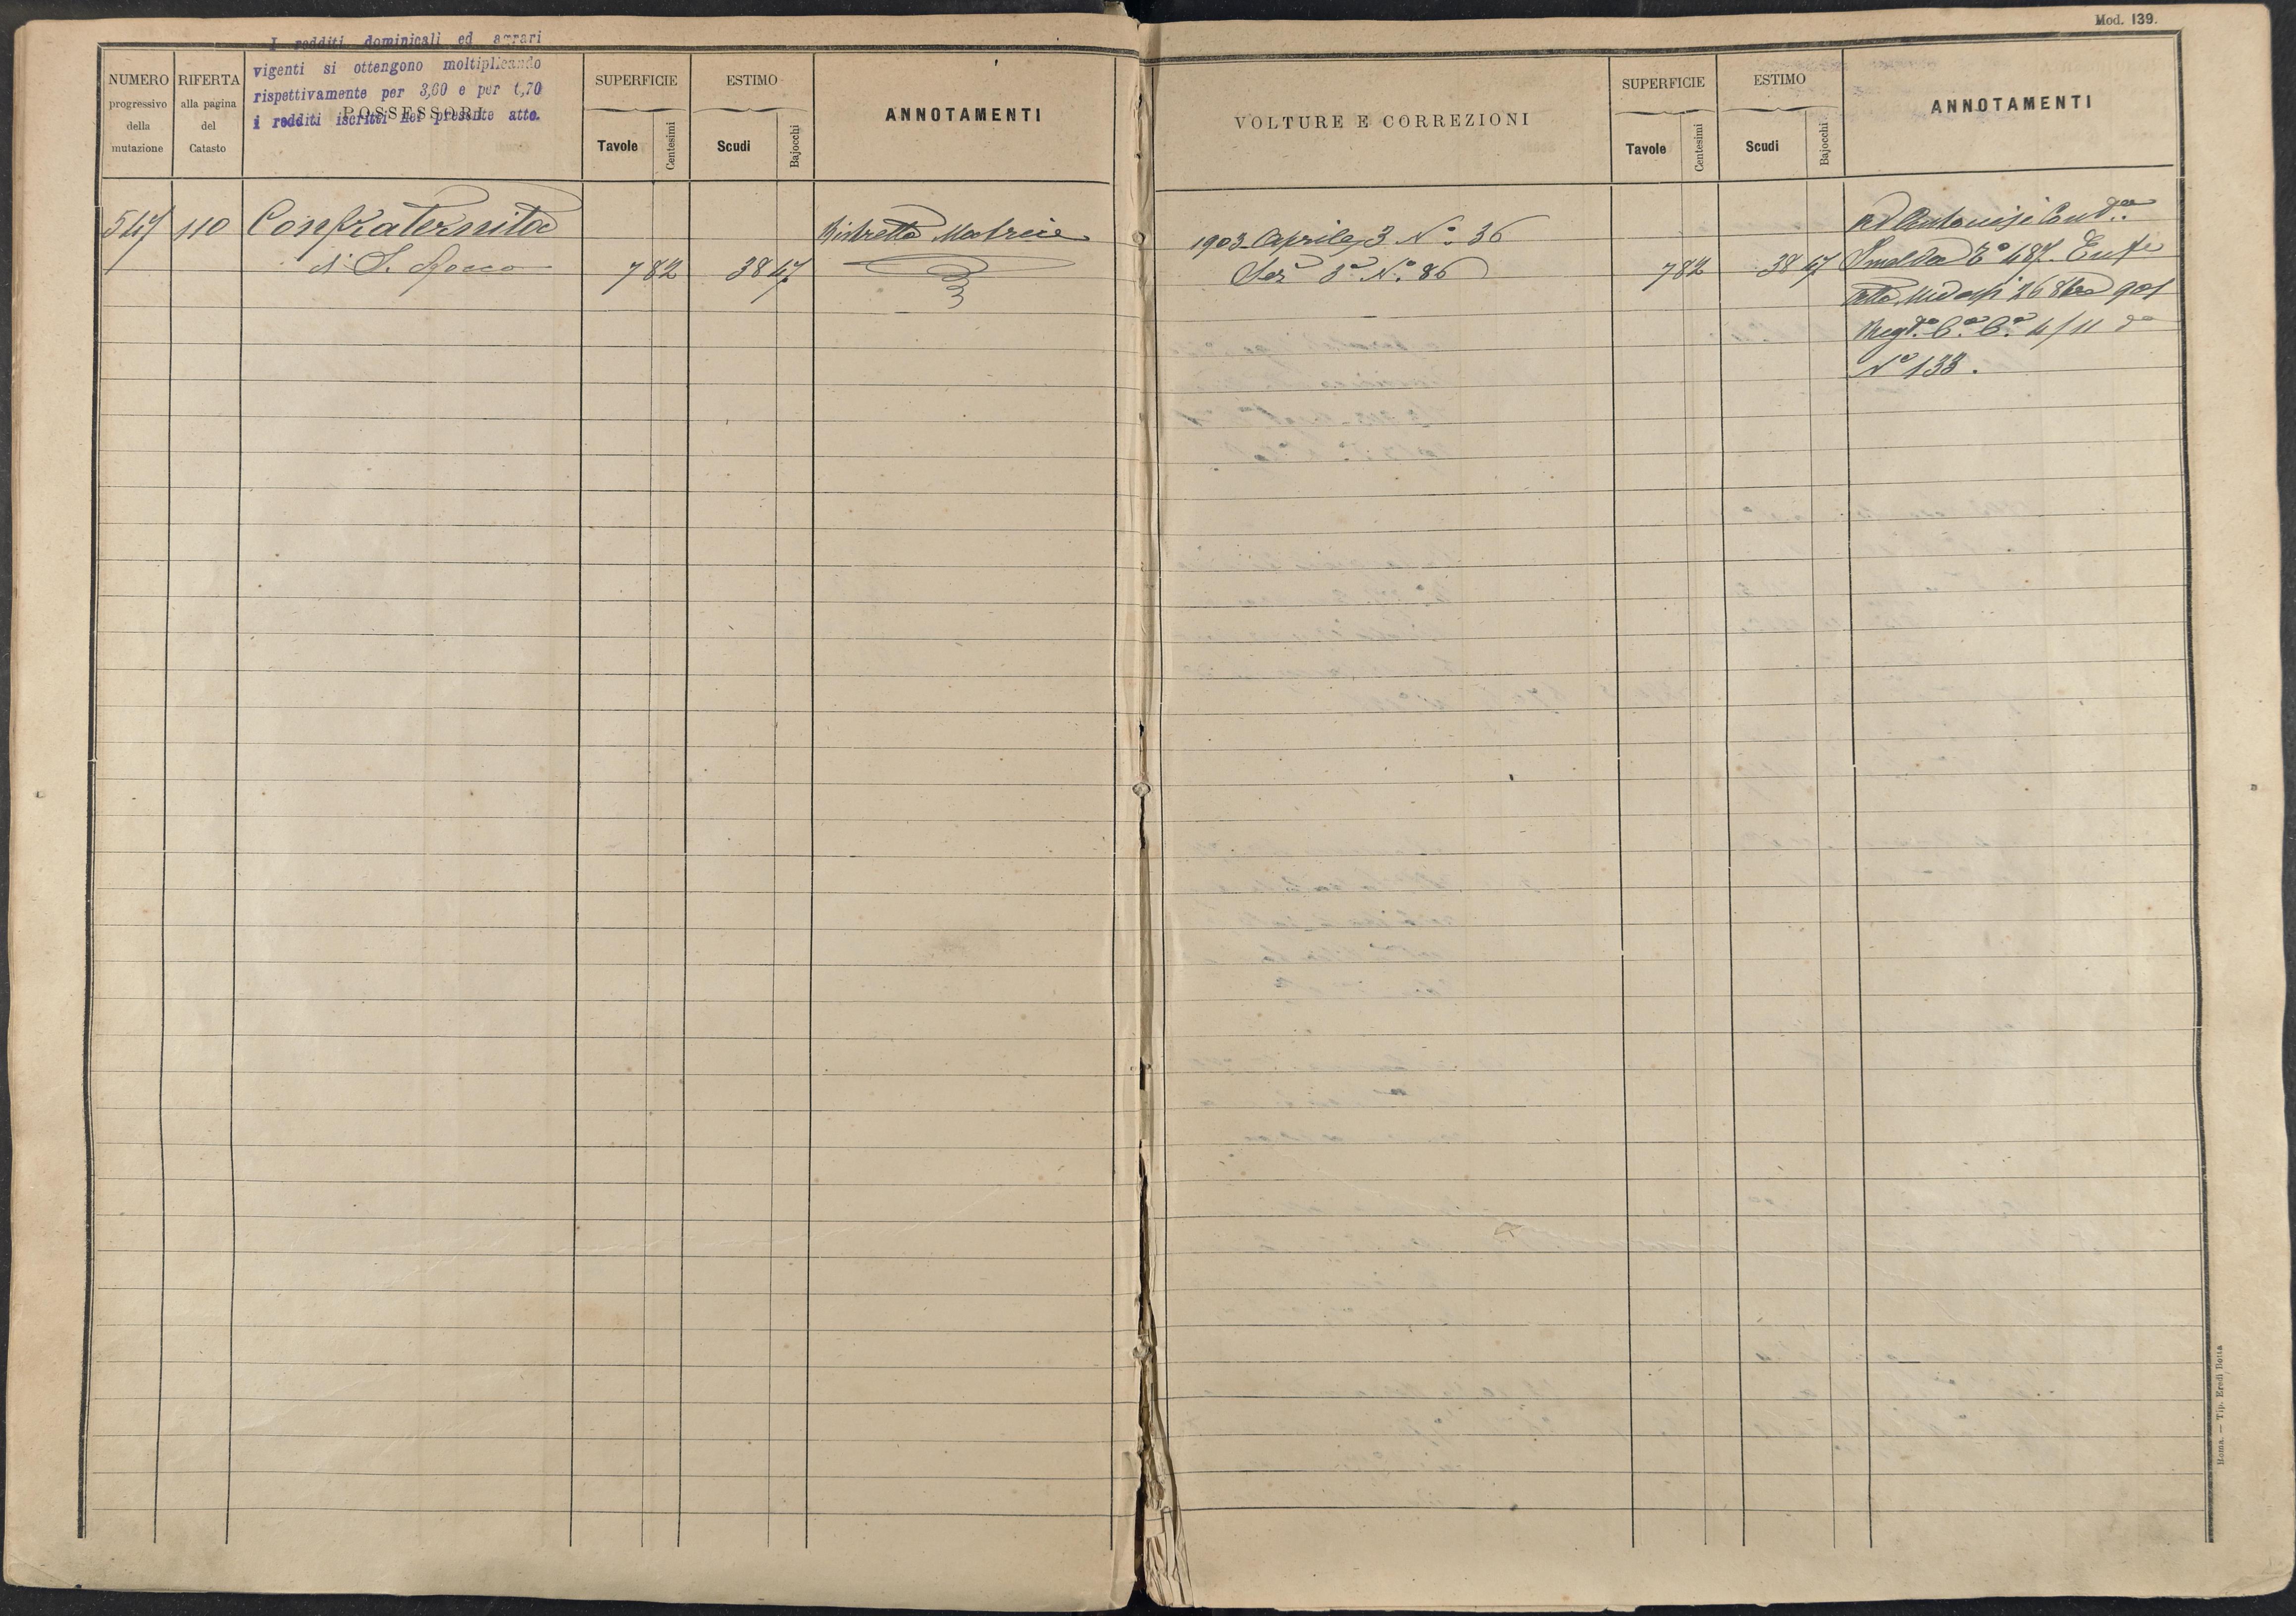 Mod. 139.
I redditi dominicali ed agrari
vigenti si ottengono moltiplicando
rispettivamente per 3,60 e per 1,70
i redditi iscritti nel presente atto.
NUMERO progressivo della mutazione
RIFERTA alla pagina del Catasto
POSSESSORI
SUPERFICIE
Tavole Centesimi
ESTIMO
Scudi Bajocchi
ANNOTAMENTI
547 110 Confraternita Ristretto Matrice
di S. Rocco 7 82 38 47
VOLTURE E CORREZIONI
SUPERFICIE
Tavole Centesimi
ESTIMO
Scudi Bajocchi
ANNOTAMENTI
1903 Aprile 3 N.° 36
N.° 86 7 82 38 47
Ad
Imelda 487
26 901
4/11
N° 133.
Roma. — Tip. Eredi Botta